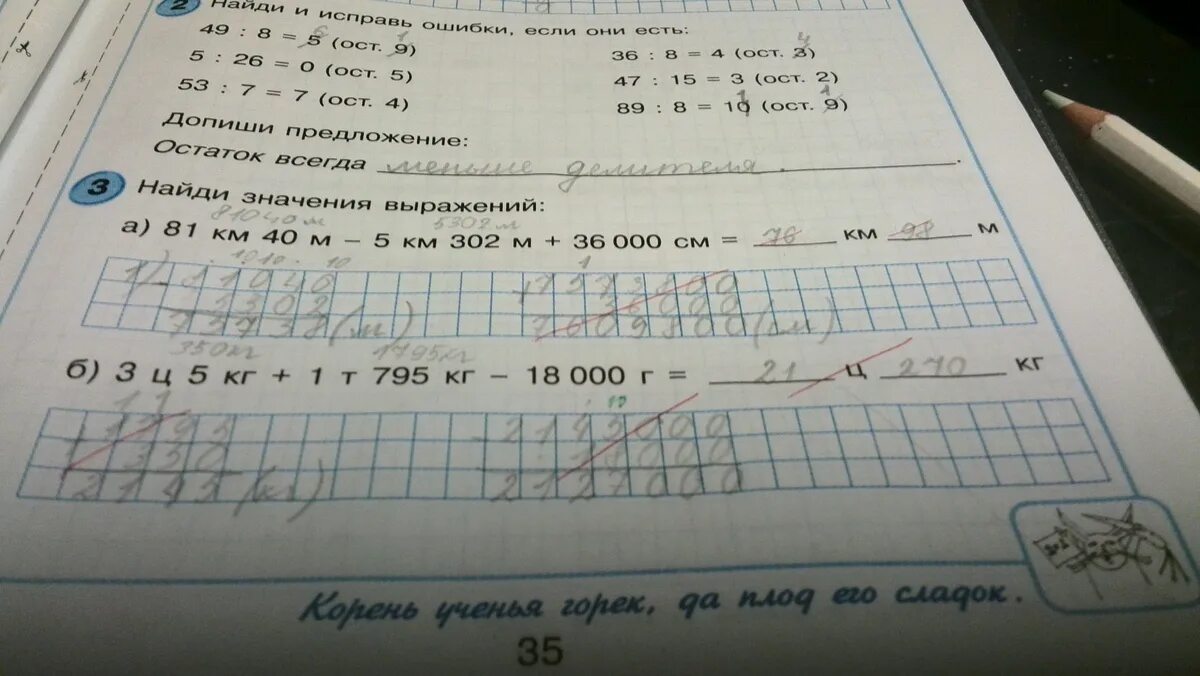 2 Найди и исправь ошибки, если они есть:
49 : 8 = 5 (ост. 9) 36 : 8 = 4 (ост. 3)
6 1 4
5 : 26 = 0 (ост. 5) 47 : 15 = 3 (ост. 2)
53 : 7 = 7 (ост. 4) 89 : 8 = 10 (ост. 9)
1 1
Допиши предложение:
Остаток всегда меньше делителя.
3 Найди значения выражений:
81040 м 5302 м
а) 81 км 40 м – 5 км 302 м + 36 000 см = 76 км 98 м
10 10 10 1
81040 7573800
5302 36000
75738 (м) 7609800 (см)
350 кг 1795 кг
б) 3 ц 5 кг + 1 т 795 кг – 18 000 г = 21 ц 270 кг
1 1 10
1795 2145000
350 18000
2145 (кг) 2127000
Корень ученья горек, да плод его сладок.
35